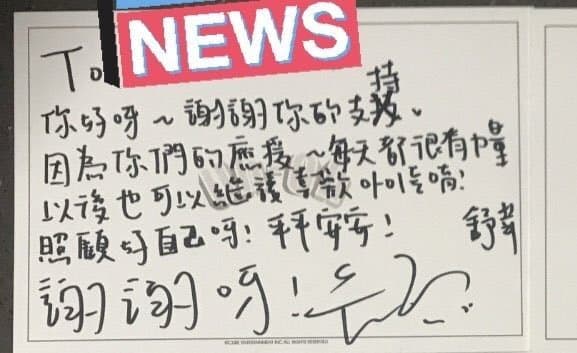 NEWS
To
你好呀～謝謝你的支持、
因為你們的應援～每天都很有力量
以後也可以繼續喜歡 아이들唷!
照顧好自己呀! 拜安安! 舒華
謝謝呀!
©CUBE ENTERTAINMENT INC. ALL RIGHTS RESERVED